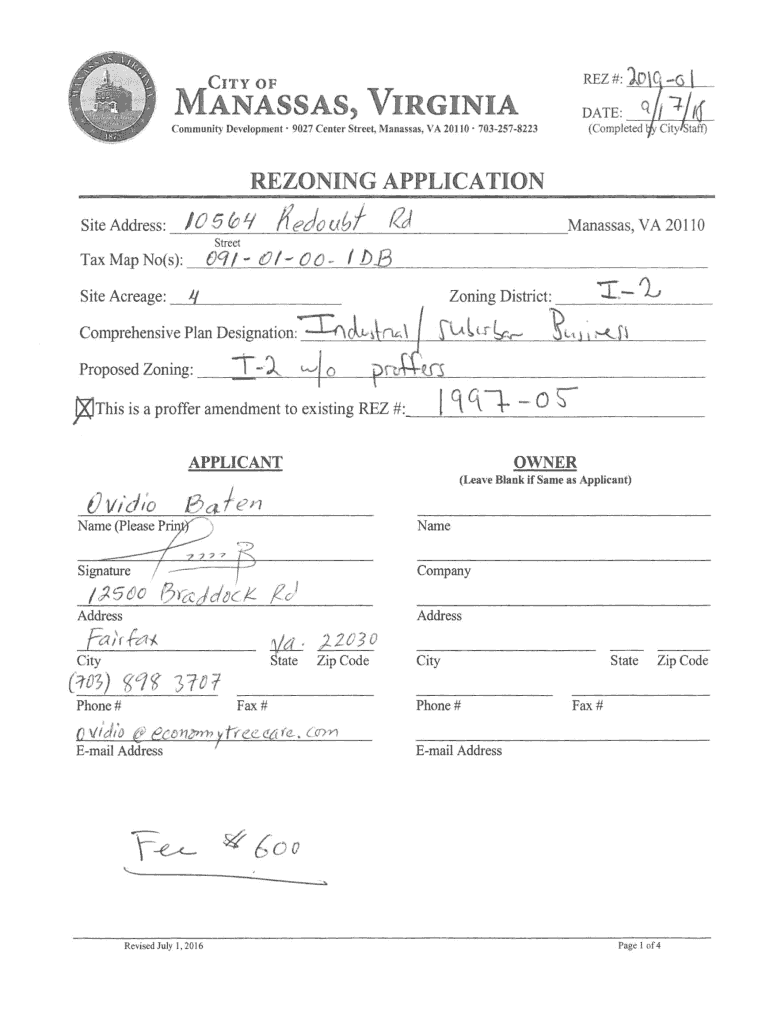 CITY OF
MANASSAS, VIRGINIA
Community Development · 9027 Center Street, Manassas, VA 20110 · 703-257-8223
REZ #: 2019-01
DATE: 9/17/18
(Completed by City Staff)
REZONING APPLICATION
Site Address: 10564 Redoubt Rd Manassas, VA 20110
Street
Tax Map No(s): 091-01-00-1DB
Site Acreage: 4 Zoning District: I-2
Comprehensive Plan Designation: Industrial / Suburban Business
Proposed Zoning: I-2 w/o proffers
☒ This is a proffer amendment to existing REZ #: 1997-05
APPLICANT
Ovidio Baten
Name (Please Print)
Signature
12500 Braddock Rd
Address
Fairfax Va. 22030
City State Zip Code
(703) 898 3707
Phone # Fax #
ovidio@economytreecare.com
E-mail Address
OWNER
(Leave Blank if Same as Applicant)
Name
Company
Address
City State Zip Code
Phone # Fax #
E-mail Address
Fee $600
Revised July 1, 2016 Page 1 of 4